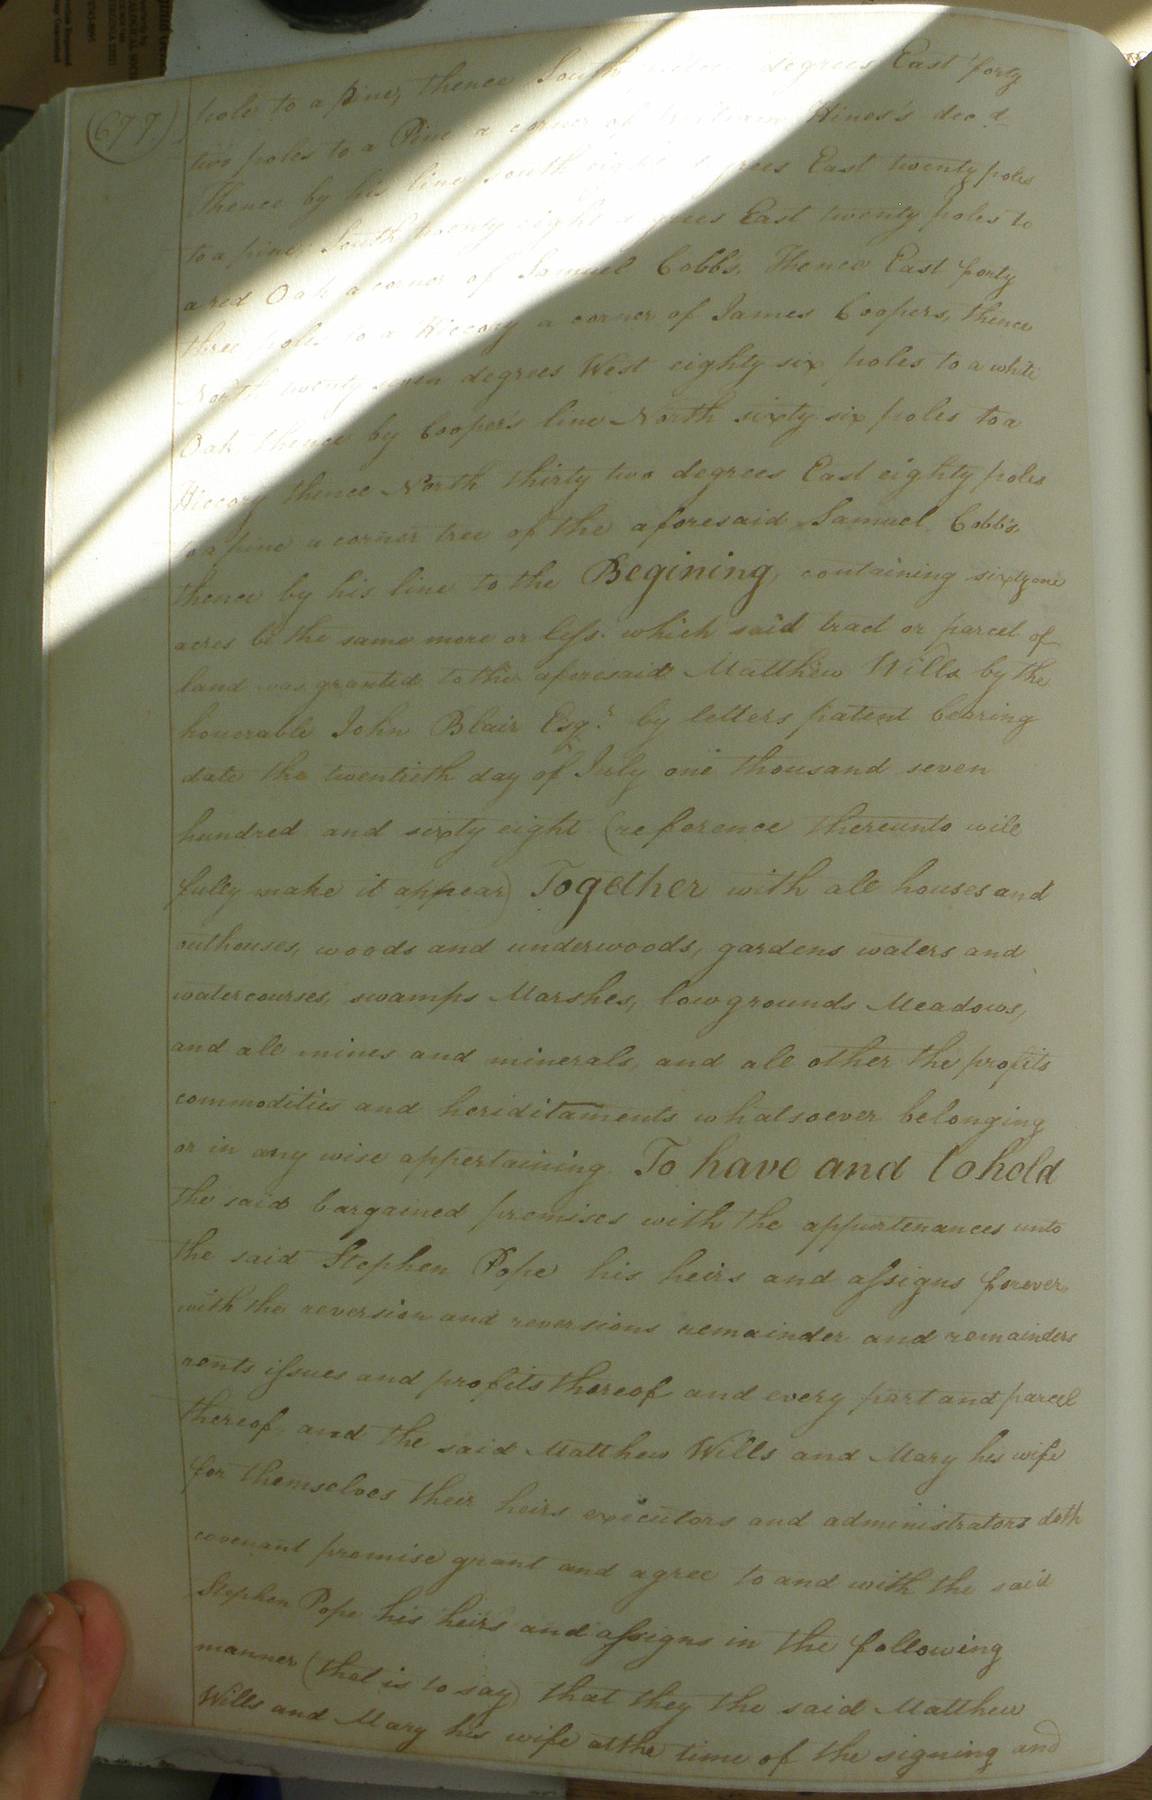 (677)
pole to a pine, thence South degrees East forty
two poles to a Pine a corner of William Hines's dec.d
Thence by his line South eight degrees East twenty poles
to a pine, South twenty eight degrees East twenty poles to
a red Oak a corner of Samuel Cobbs, Thence East forty
three poles to a Hiccory a corner of James Coopers, thence
North twenty seven degrees West eighty six poles to a white
Oak thence by Cooper's line North sixty six poles to a
Hiccory thence North thirty two degrees East eighty poles
to a pine a corner tree of the aforesaid Samuel Cobb's,
thence by his line to the Begining, containing sixty one
acres be the same more or less. which said tract or parcel of
land was granted to the aforesaid Matthew Wills by the
honorable John Blair Esqr. by letters patent bearing
date the twentieth day of July one thousand seven
hundred and sixty eight (reference thereunto will
fully make it appear) Together with all houses and
outhouses, woods and underwoods, gardens waters and
watercourses, swamps Marshes, lowgrounds Meadows,
and all mines and minerals, and all other the profits
commodities and heriditaments whatsoever belonging
or in any wise appertaining To have and to hold
the said bargained premises with the appurtenances unto
the said Stephen Pope his heirs and assigns forever,
with the reversion and reversions remainder and remainders
rents issues and profits thereof and every part and parcel
thereof, and the said Matthew Wills and Mary his wife
for themselves their heirs executors and administrators doth
covenant promise grant and agree to and with the said
Stephen Pope his heirs and assigns in the following
manner (that is to say) that they the said Matthew
Wills and Mary his wife at the time of the signing and